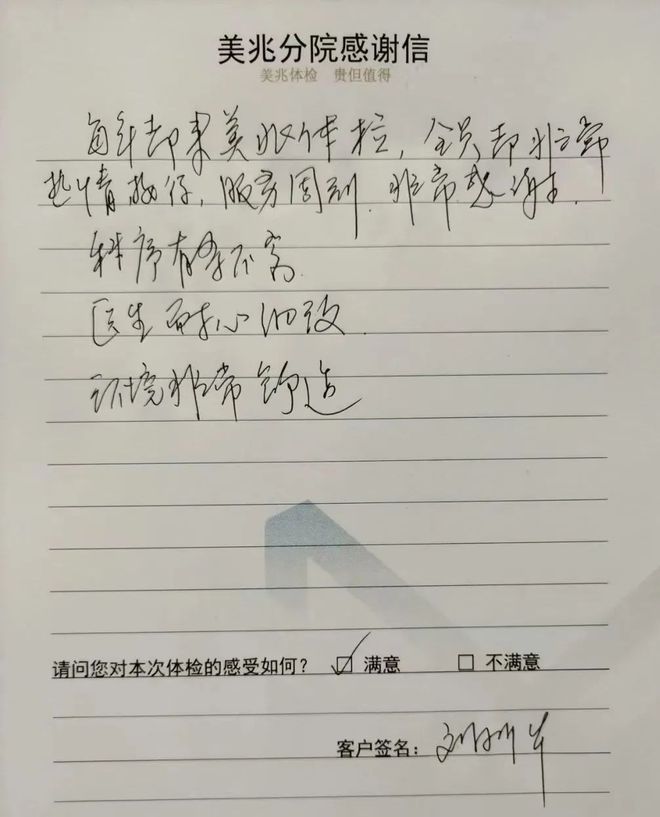 美兆分院感谢信
美兆体检 贵但值得
每年都来美兆体检，全员都非常
热情，服务周到，非常感谢。
程序有条不紊
医生耐心细致
环境非常舒适
请问您对本次体检的感受如何？ ☑ 满意 □ 不满意
客户签名：